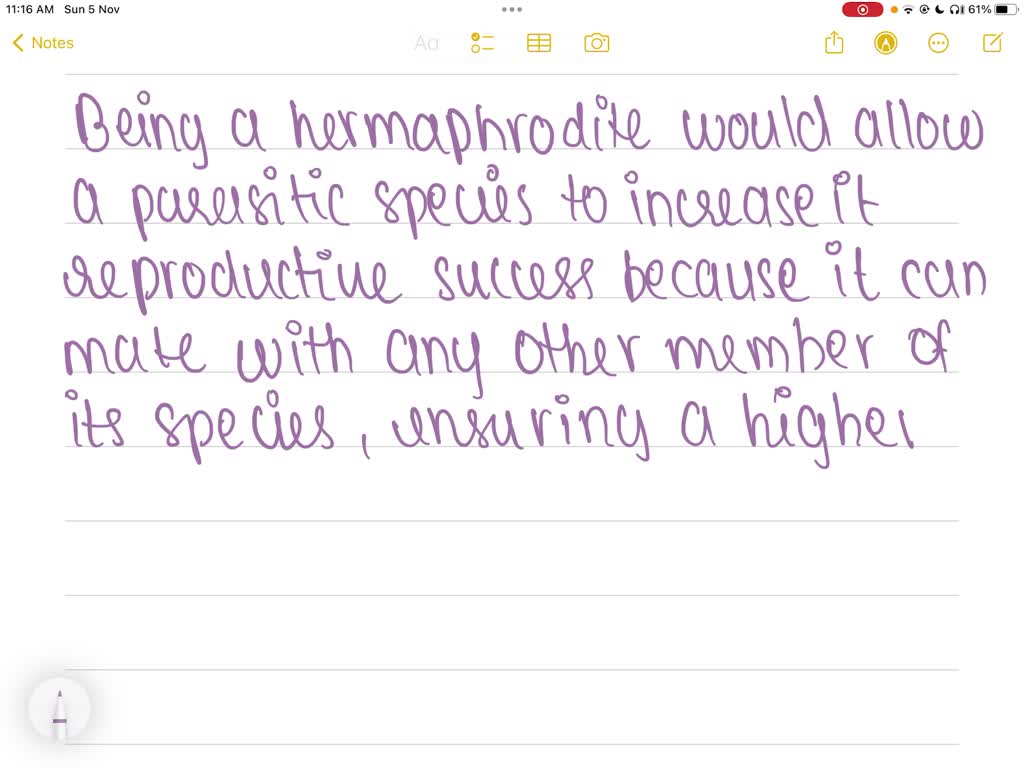 11:16 AM Sun 5 Nov
61%
Notes
Aa
Being a hermaphrodite would allow
a parasitic species to increase it
reproductive success because it can
mate with any other member of
its species, ensuring a higher